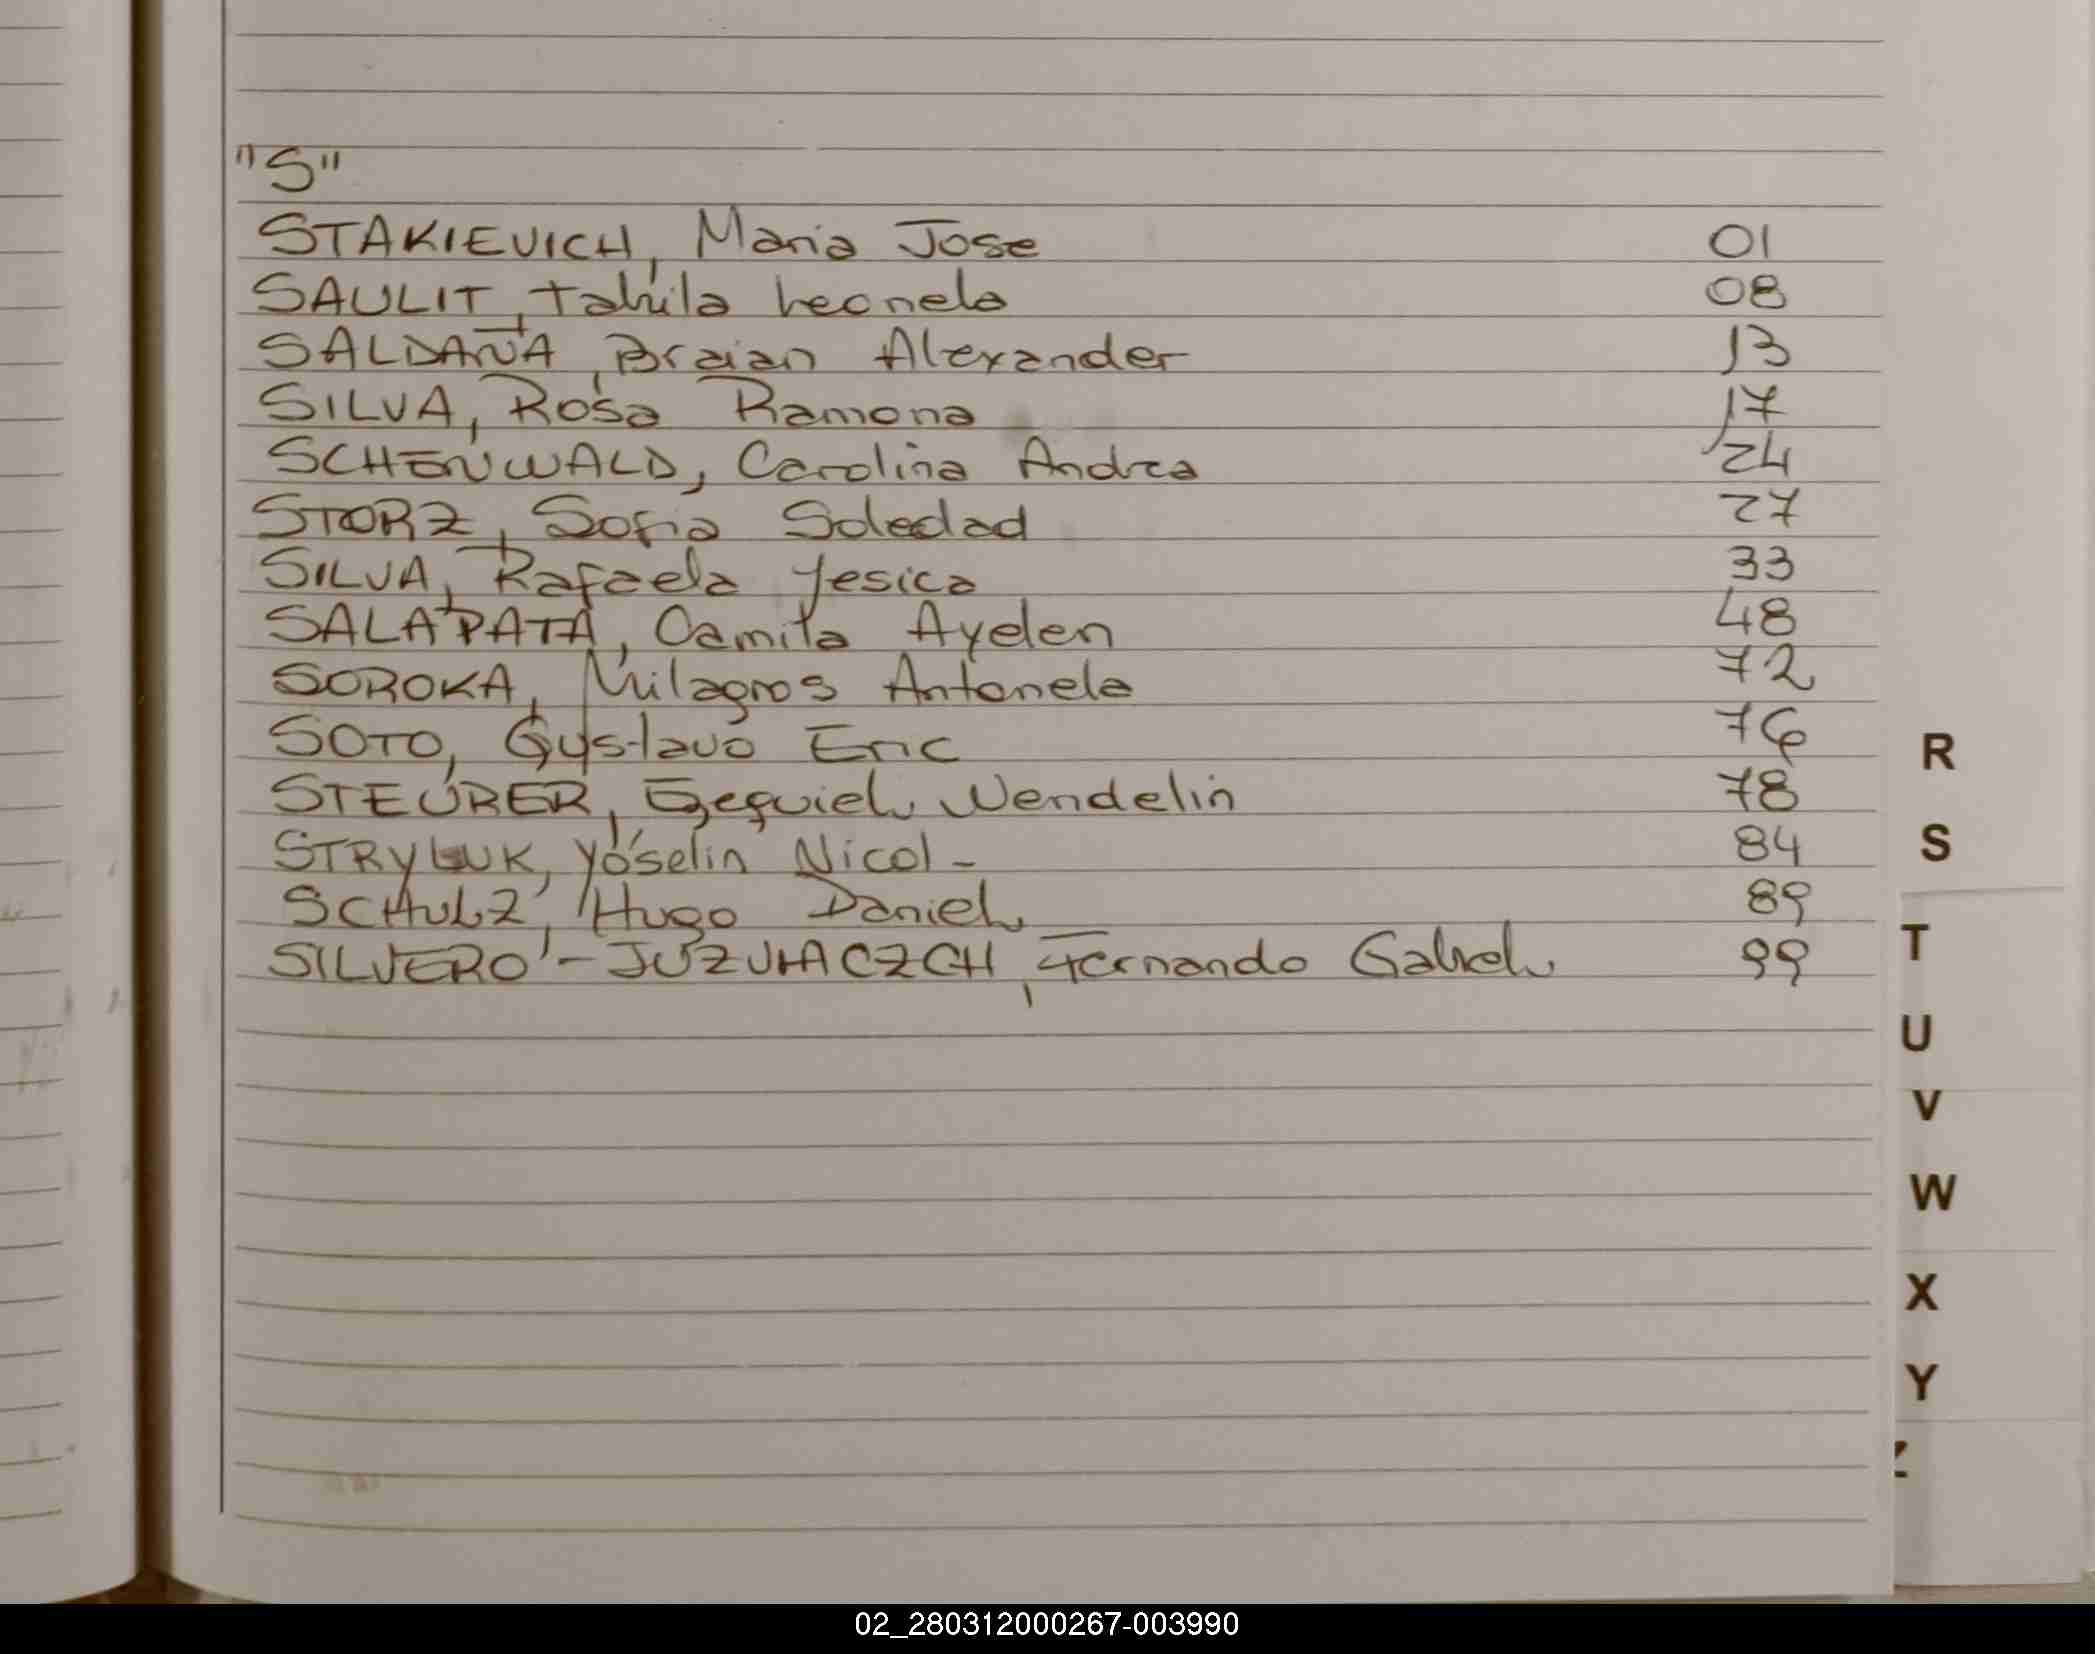 "S"
STAKIEVICH, Maria Jose 01
SAULIT, Tahila Leonela 08
SALDAÑA, Braian Alexander 13
SILVA, Rosa Ramona 17
SCHENWALD, Carolina Andrea 24
STORZ, Sofia Soledad 27
SILVA, Rafaela Yesica 33
SALAPATA, Camila Ayelen 48
SOROKA, Milagros Antonela 72
SOTO, Gustavo Eric 76
STEURER, Ezequiel Wendelin 78
STRYLUK, Yoselin Nicol - 84
SCHULZ, Hugo Daniel 89
SILVERO - JUZUHACZCH, Fernando Gabriel 99
R
S
T
U
V
W
X
Y
Z
02_280312000267-003990